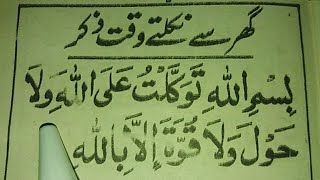 گھر سے نکلتے وقت ذکر
بِسْمِ اللهِ تَوَكَّلْتُ عَلَى اللهِ وَلَا
حَوْلَ وَلَا قُوَّةَ إِلَّا بِاللهِ